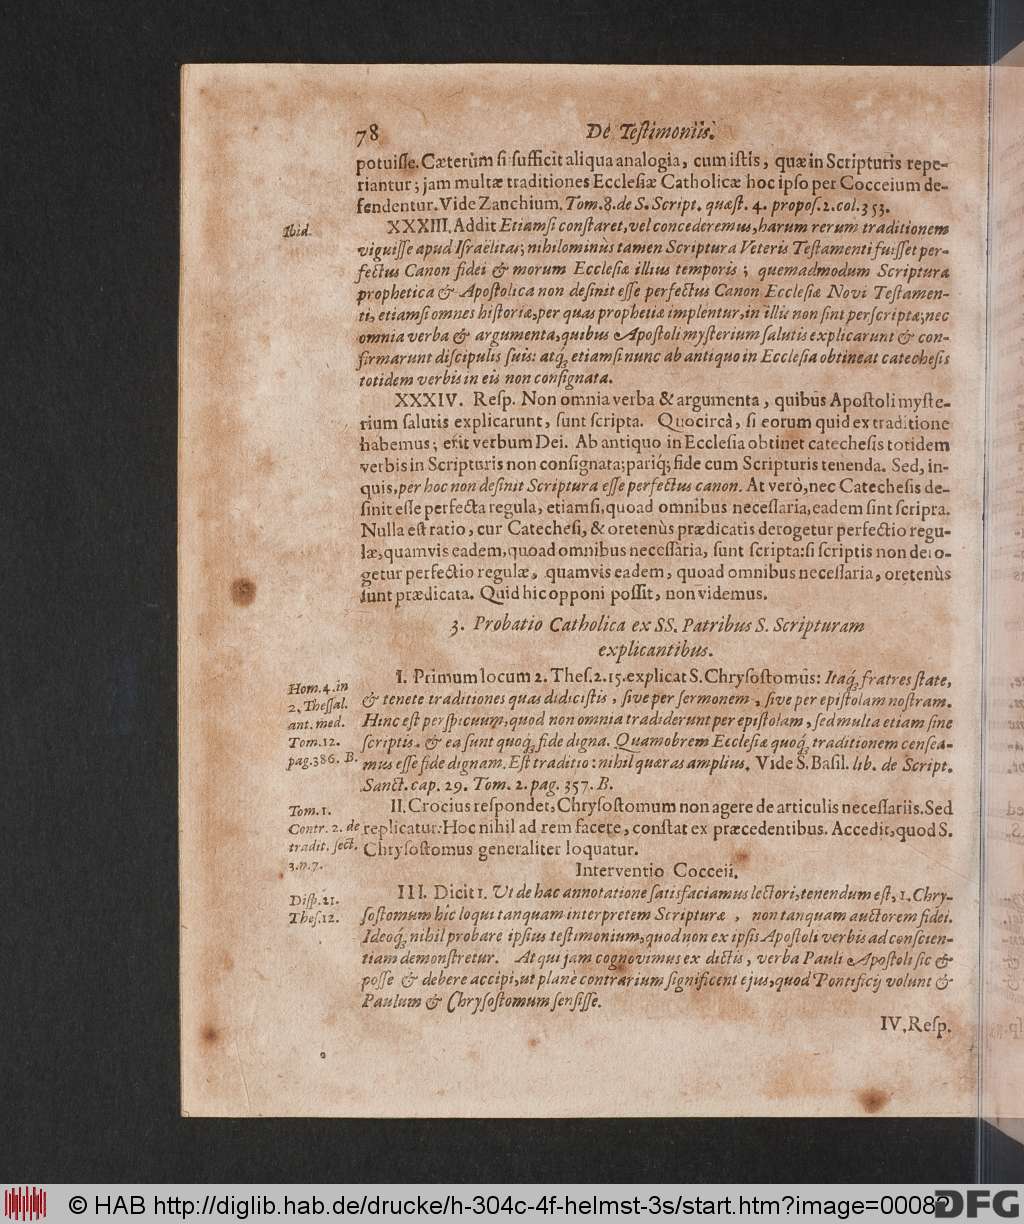 78 De Testimoniis.
potuiſſe. Cæterùm ſi ſufficit aliqua analogia, cum iſtis, quæ in Scripturis repe-
riantur; jam multæ traditiones Eccleſiæ Catholicæ hoc ipſo per Cocceium de-
fendentur. Vide Zanchium. Tom. 8. de S. Script. quæſt. 4. propoſ. 2. col. 353.
Ibid.
XXXIII. Addit Etiamſi conſtaret, vel concederemus, harum rerum traditionem
viguiſſe apud Iſraëlitas; nihilominùs tamen Scriptura Veteris Teſtamenti fuiſſet per-
fectus Canon fidei & morum Eccleſiæ illius temporis; quemadmodum Scriptura
prophetica & Apoſtolica non deſinit eſſe perfectus Canon Eccleſiæ Novi Teſtamen-
ti, etiamſi omnes hiſtoriæ, per quas prophetiæ implentur, in illis non ſint perſcriptæ; nec
omnia verba & argumenta, quibus Apoſtoli myſterium ſalutis explicarunt & con-
firmarunt diſcipulis ſuis: atq́; etiamſi nunc ab antiquo in Eccleſia obtineat catecheſis
totidem verbis in eis non conſignata.
XXXIV. Reſp. Non omnia verba & argumenta, quibus Apoſtoli myſte-
rium ſalutis explicarunt, ſunt ſcripta. Quocircà, ſi eorum quid ex traditione
habemus; erit verbum Dei. Ab antiquo in Eccleſia obtinet catecheſis totidem
verbis in Scripturis non conſignata; pariq́; fide cum Scripturis tenenda. Sed, in-
quis, per hoc non deſinit Scriptura eſſe perfectus canon. At verò, nec Catecheſis de-
ſinit eſſe perfecta regula, etiamſi, quoad omnibus neceſſaria, eadem ſint ſcripta.
Nulla eſt ratio, cur Catecheſi, & oretenùs prædicatis derogetur perfectio regu-
læ, quamvis eadem, quoad omnibus neceſſaria, ſunt ſcripta: ſi ſcriptis non dero-
getur perfectio regulæ, quamvis eadem, quoad omnibus neceſſaria, oretenùs
ſunt prædicata. Quid hic opponi poſſit, non videmus.
3. Probatio Catholica ex SS. Patribus S. Scripturam
explicantibus.
Hom. 4. in
2. Theſſal.
ant. med.
Tom. 12.
pag. 386. B.
I. Primum locum 2. Theſ. 2. 15. explicat S. Chryſoſtomus: Itaq́; fratres ſtate,
& tenete traditiones quas didiciſtis, ſive per ſermonem, ſive per epiſtolam noſtram.
Hinc eſt perſpicuum, quod non omnia tradiderunt per epiſtolam, ſed multa etiam ſine
ſcriptis. & ea ſunt quoq́; fide digna. Quamobrem Eccleſiæ quoq́; traditionem cenſea-
mus eſſe fide dignam. Eſt traditio: nihil quæras amplius. Vide S. Baſil. lib. de Script.
Sanct. cap. 29. Tom. 2. pag. 357. B.
Tom. 1.
Contr. 2. de
tradit. ſect.
3. n. 7.
II. Crocius reſpondet, Chryſoſtomum non agere de articulis neceſſariis. Sed
replicatur: Hoc nihil ad rem facere, conſtat ex præcedentibus. Accedit, quod S.
Chryſoſtomus generaliter loquatur.
Interventio Cocceii.
Diſp. 21.
Theſ. 12.
III. Dicit 1. Ut de hac annotatione ſatisfaciamus lectori, tenendum eſt, 1. Chry-
ſoſtomum hîc loqui tanquam interpretem Scripturæ, non tanquam auctorem fidei.
Ideoq́; nihil probare ipſius teſtimonium, quod non ex ipſis Apoſtoli verbis ad conſcien-
tiam demonſtretur. At qui jam cognovimus ex dictis, verba Pauli Apoſtoli ſic &
poſſe & debere accipi, ut planè contrarium ſignificent ejus, quod Pontificij volunt &
Paulum & Chryſoſtomum ſenſiſſe.
IV. Reſp.
© HAB http://diglib.hab.de/drucke/h-304c-4f-helmst-3s/start.htm?image=00082
DFG